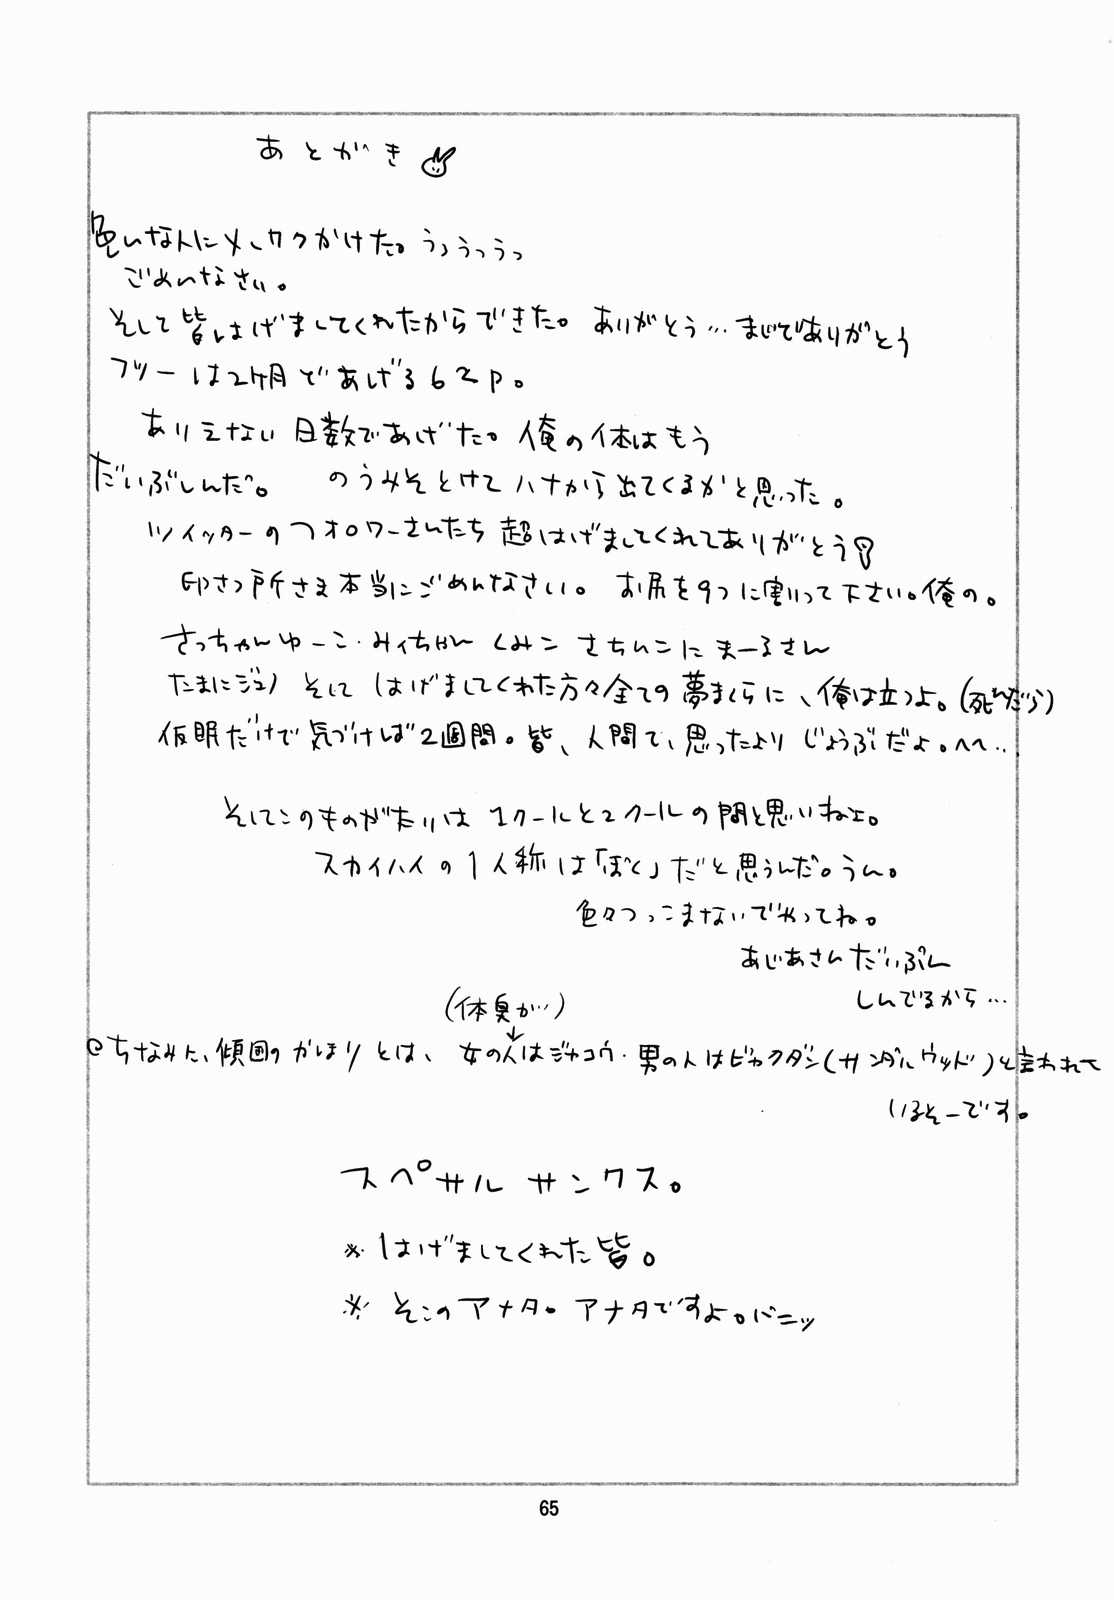 あとがき
色んな人にメーワクかけた。うっうっうっ
ごめんなさい。
そして皆はげましてくれたからできた。ありがとう…まじでありがとう
フツーは2ヶ月であげる62p。
ありえない日数であげた。俺の体はもう
だいぶしんだ。 のうみそとけてハナから出てくるかと思った。
ツイッターのフォロワーさんたち超はげましてくれてありがとう!
印さつ所さま本当にごめんなさい。お尻を9つに割って下さい。俺の。
さっちゃんゆーこ・みィちゃん くみこ さちんこにまーるさん
たまにジュノ そして はげましてくれた方々全ての夢まくらに、俺は立つよ。(死んだら)
仮眠だけで気づけば2週間。皆、人間て、思ったより じょうぶだよ。へへ…
そしてこのものがたりは1クールと2クールの間と思いねェ。
スカイハイの1人称は「ぼく」だと思うんだ。うん。
色々つっこまないでやってね。
あじあさんだいぶん
しんでるから…
(体臭が…)
@ちなみに、傾国のかほりとは、女の人はジャコウ・男の人はビャクダン(サンダルウッド)と言われて
いるそーです。
スペサルサンクス。
※はげましてくれた皆。
※そこのアナタ。アナタですよ。バニッ
65